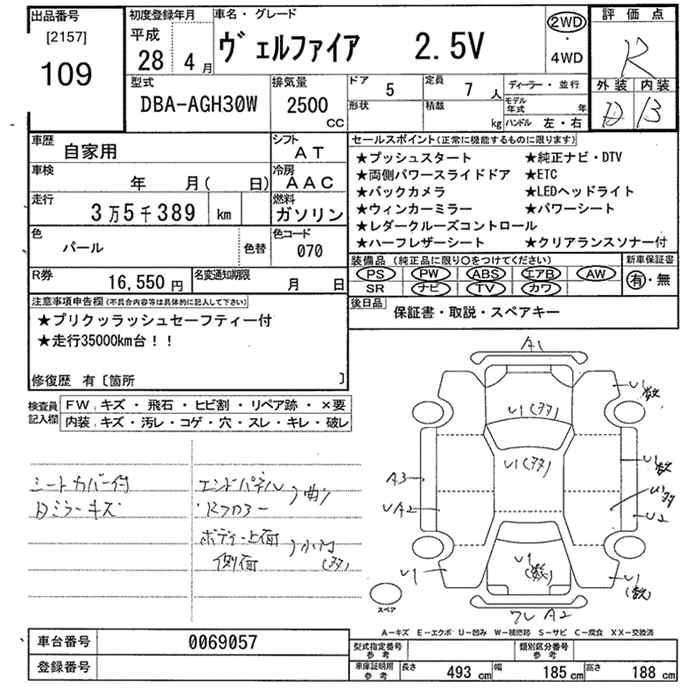 出品番号
[2157]
109
初度登録年月
平成
28 4月
車名・グレード
ヴェルファイア 2.5V
2WD
・
4WD
評価点
R
外装 内装
D B
型式
DBA-AGH30W
排気量
2500 CC
ドア 5
定員 7 人
ディーラー・並行
形状
積載 kg
モデル年式 年
ハンドル 左・右
車歴
自家用
シフト
AT
車検
年 月( 日)
冷房
AAC
走行
3万5千389 km
燃料
ガソリン
色
パール
色替
色コード
070
R券
16,550円
名変通知期限
月 日
セールスポイント(正常に機能するものに限ります)
★プッシュスタート ★純正ナビ・DTV
★両側パワースライドドア ★ETC
★バックカメラ ★LEDヘッドライト
★ウィンカーミラー ★パワーシート
★レダークルーズコントロール
★ハーフレザーシート ★クリアランスソナー付
装備品(純正品に限り○をつけてください)
PS PW ABS エアB AW
SR ナビ TV カワ
新車保証書
有・無
後日品
保証書・取説・スペアキー
注意事項申告欄(不具合内容等は具体的に記入して下さい)
★プリクッラッシュセーフティー付
★走行35000km台！！
修復歴 有〔箇所 〕
検査員記入欄
FW.キズ・飛石・ヒビ割・リペア跡・×要
内装.キズ・汚レ・コゲ・穴・スレ・キレ・破レ
シートカバー付
Dミラーキズ
エンドパネル
Rフロアー
曲り
ボディー上面
側面
小凹
(多)
A1
U1(多)
U1
U1(多)
A3
UA2
U1
U2
U1
U1(数)
U1
(数)
スペア
フレA2
A-キズ E-エクボ U-凹み W-補修跡 S-サビ C-腐食 XX-交換済
車台番号 0069057
登録番号
型式指定番号 参考
類別区分番号 参考
車庫証明用 参考
長さ 493 cm 幅 185 cm 高さ 188 cm